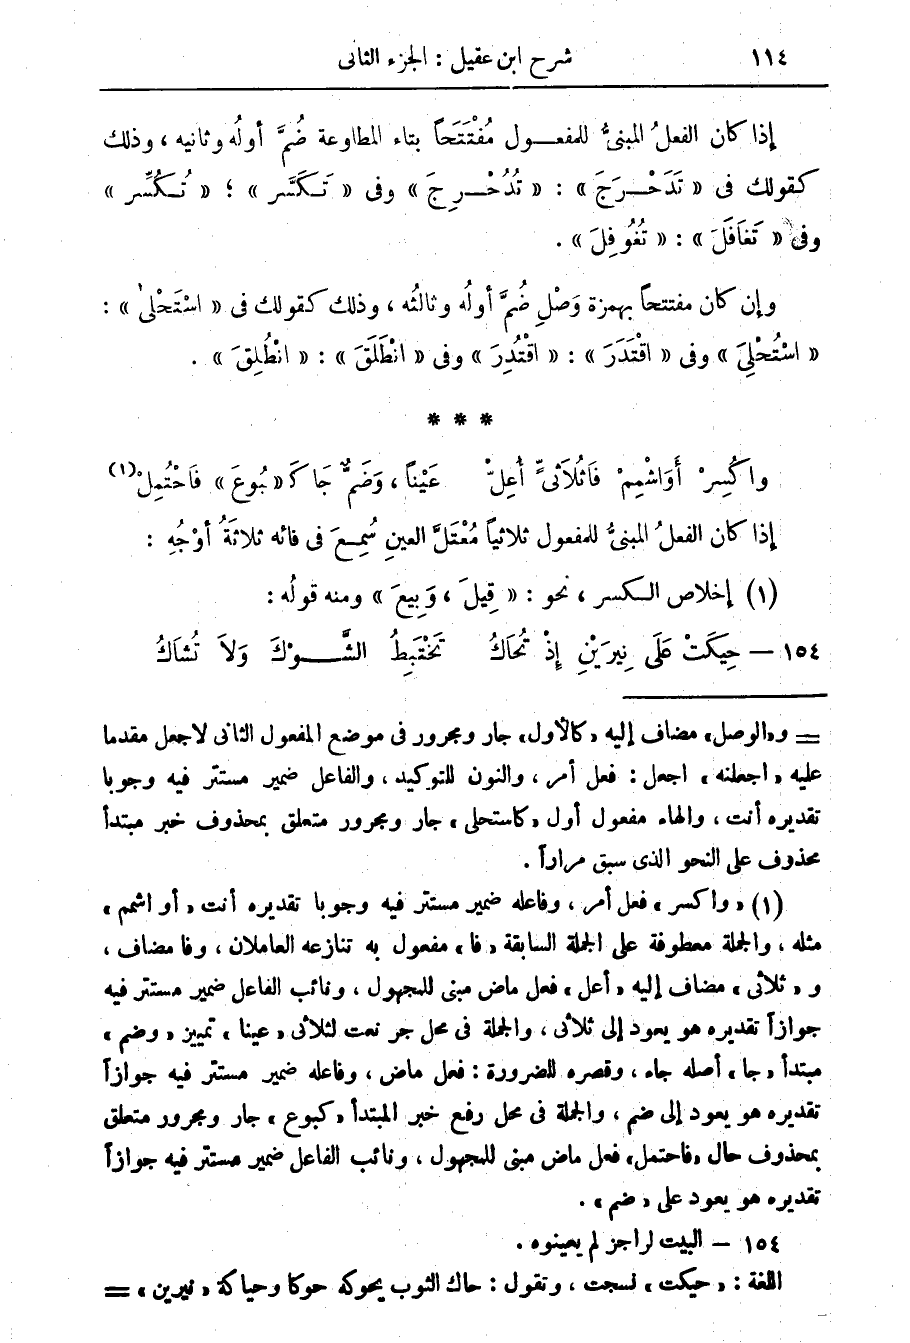 ١١٤ شرح ابن عقيل : الجزء الثانى
إذا كان الفعلُ المبنىُّ للمفعـــول مُفْتَتَحاً بتاء المطاوعة ضُمَّ أولُه وثانيه ، وذلك
كقولك فى « تَدَحْــرَجَ » : « تُدُحْــرِجَ » وفى « تَـكَسَّر » ؛ « تُـكُسِّر »
وفى « تَغَافَلَ » : « تُغُوفِلَ » .
وإن كان مفتتحاً بهمزة وَصْلٍ ضُمَّ أولُه وثالثُه ، وذلك كقولك فى « اسْتَحْلىٰ » :
« اسْتُحْلِىَ » وفى « اقْتَدَرَ » : « اقْتُدِرَ » وفى « انْطَلَقَ » : « انْطُلِقَ » .
* * *
واكْسِرْ أَوَاشْمِمْ فَاثُلاَثِىٍّ أُعِلّْ عَيْناً ، وَضَمٌّ جَا كَـ « بُوعَ » فَاحْتُمِلْ (١)
إذا كان الفعلُ المبنىُّ للمفعول ثلاثياً مُعْتَلَّ العينِ سُمِـعَ فى فائه ثلاثَةُ أوْجُهٍ :
(١) إخلاص الـكسر ، نحو : « قِيلَ ، وَبِيعَ » ومنه قولُه :
١٥٤ — حِيكَتْ عَلَى نِيرَيْنِ إِذْ تُحَاكُ تَخْتَبِطُ الشَّـــوْكَ وَلاَ تُشَاكُ
= و«الوصل» مضاف إليه «كالأول» جار ومجرور فى موضع المفعول الثانى لاجعل مقدما
عليه «اجعلنه» اجعل : فعل أمر ، والنون للتوكيد ، والفاعل ضمير مستتر فيه وجوبا
تقديره أنت ، والهاء مفعول أول «كاستحلى» جار ومجرور متعلق بمحذوف خبر مبتدأ
محذوف على النحو الذى سبق مراراً .
(١) «واكسر» فعل أمر ، وفاعله ضمير مستتر فيه وجوبا تقديره أنت «أو اشمم»
مثله ، والجملة معطوفة على الجملة السابقة «فا» مفعول به تنازعه العاملان ، وفا مضاف ،
و «ثلاثى» مضاف إليه «أعل» فعل ماض مبنى للمجهول ، ونائب الفاعل ضمير مستتر فيه
جوازاً تقديره هو يعود إلى ثلاثى ، والجملة فى محل جر نعت لثلاثى «عينا» تمييز «وضم»
مبتدأ «جا» أصله جاء ، وقصره للضرورة : فعل ماض ، وفاعله ضمير مستتر فيه جوازاً
تقديره هو يعود إلى ضم ، والجملة فى محل رفع خبر المبتدأ «كبوع» جار ومجرور متعلق
بمحذوف حال «فاحتمل» فعل ماض مبنى للمجهول ، ونائب الفاعل ضمير مستتر فيه جوازاً
تقديره هو يعود على «ضم» .
١٥٤ — البيت لراجز لم يعينوه .
اللغة : «حيكت» نسجت ، وتقول : حاك الثوب يحوكه حوكا وحياكة «نيرين» =